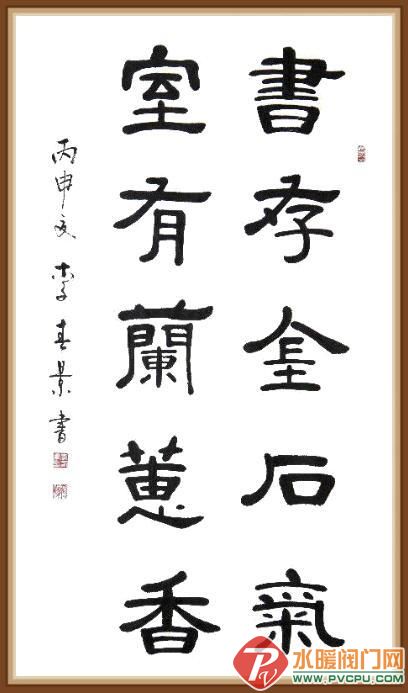 書存金石氣
室有蘭蕙香
丙申 李春景書
PV
水暖阀门网
WWW.PVCPU.COM